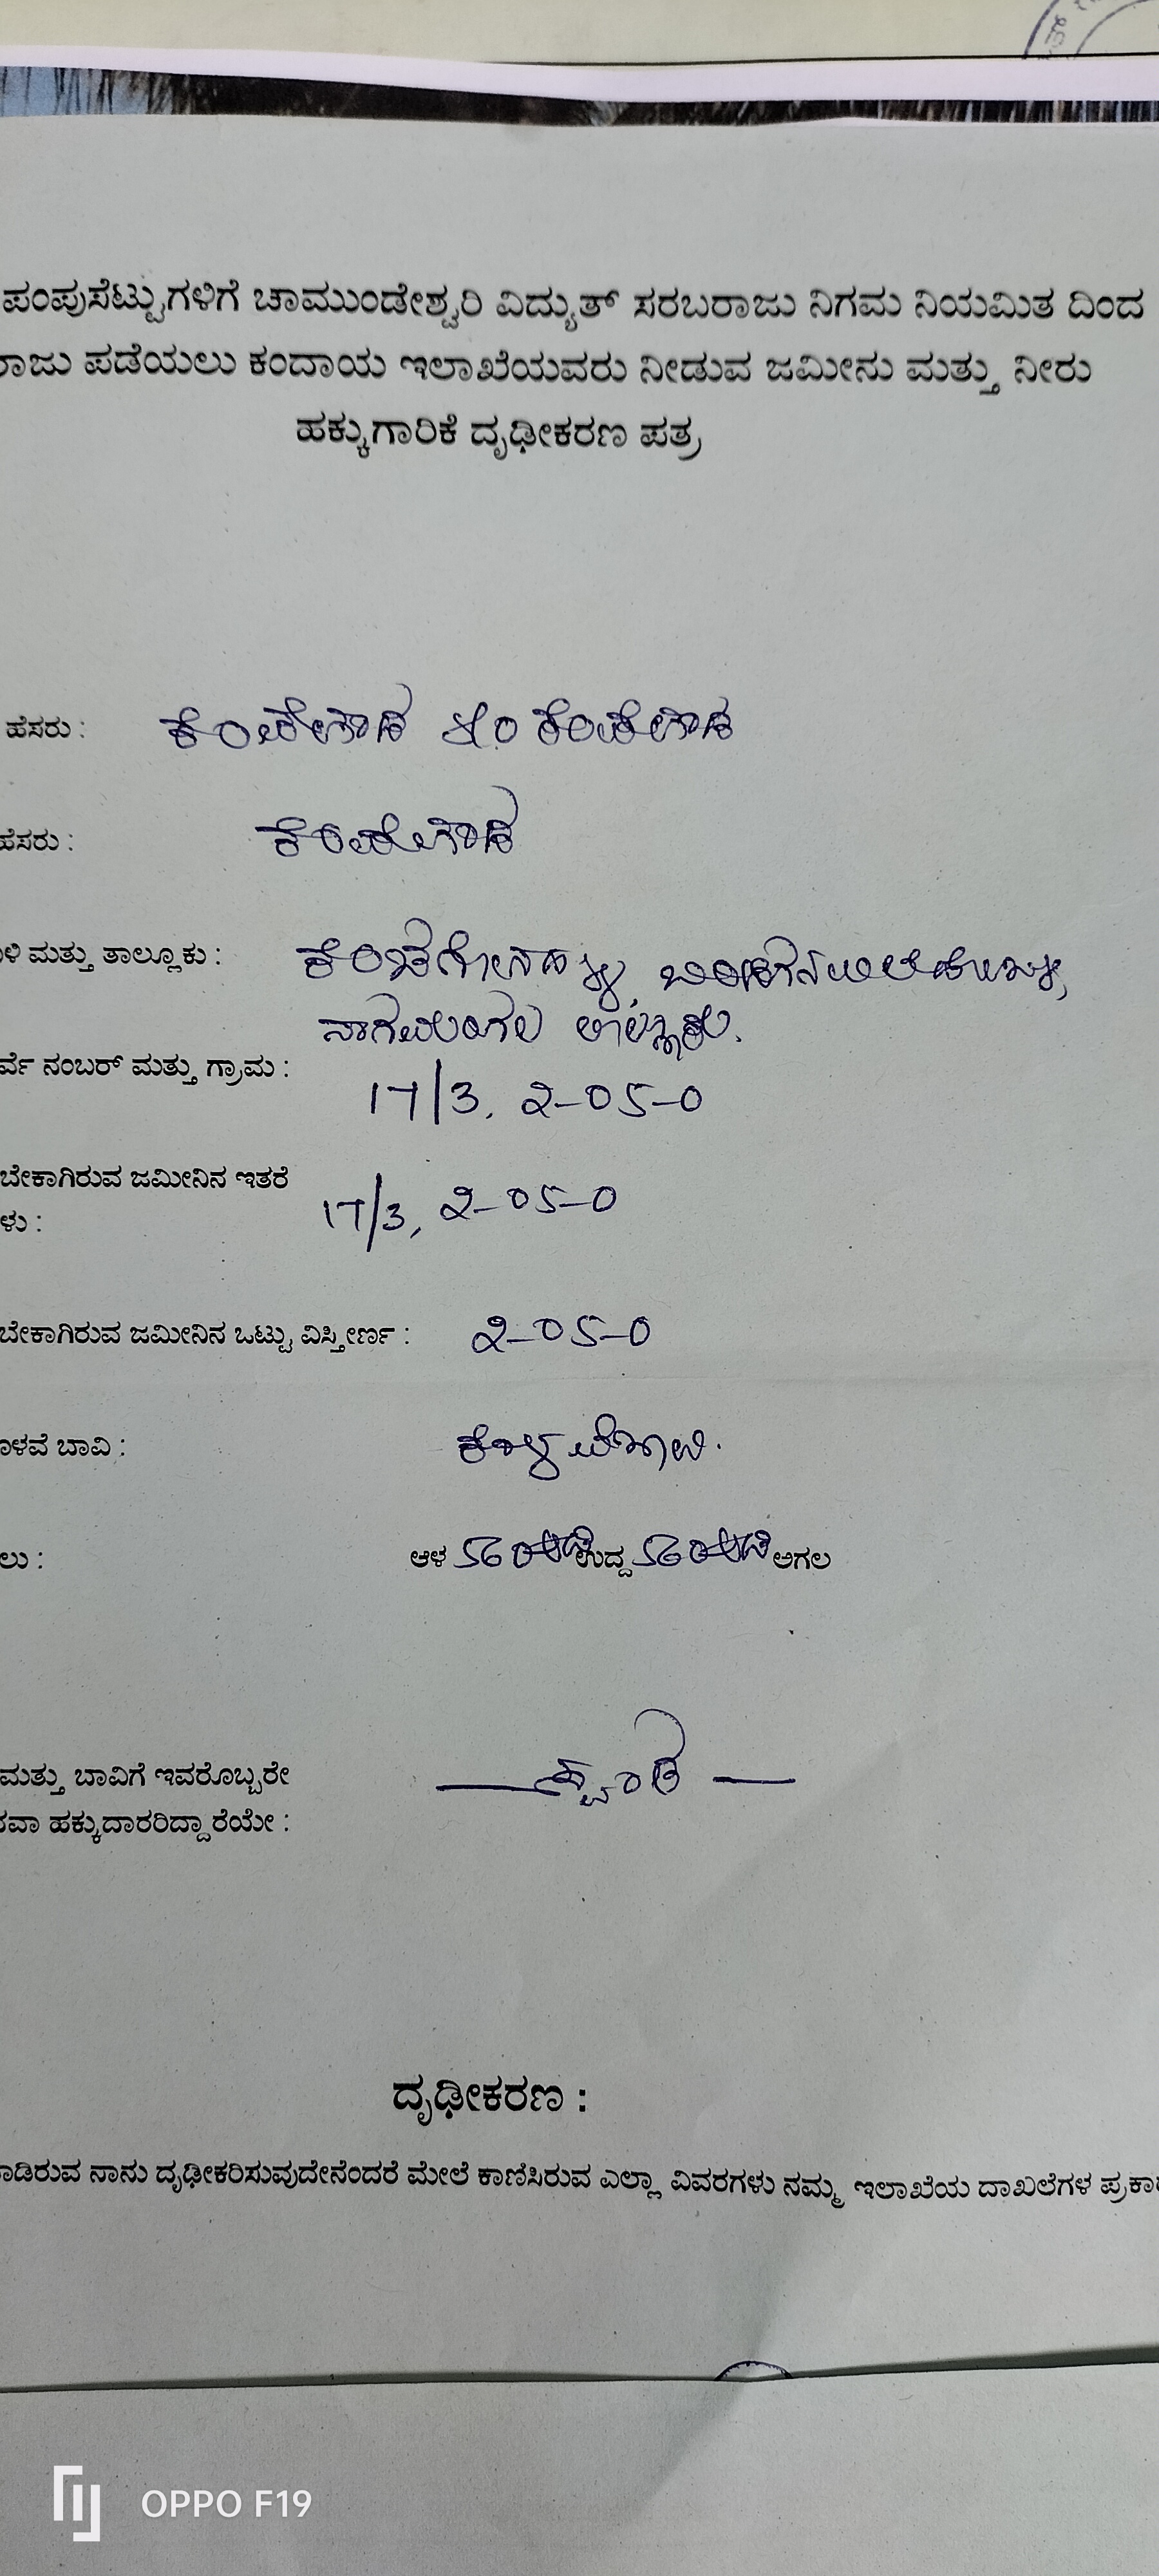 ಪಂಪುಸೆಟ್ಟುಗಳಿಗೆ ಚಾಮುಂಡೇಶ್ವರಿ ವಿದ್ಯುತ್ ಸರಬರಾಜು ನಿಗಮ ನಿಯಮಿತ ದಿಂದ
ರಾಜು ಪಡೆಯಲು ಕಂದಾಯ ಇಲಾಖೆಯವರು ನೀಡುವ ಜಮೀನು ಮತ್ತು ನೀರು
ಹಕ್ಕುಗಾರಿಕೆ ದೃಢೀಕರಣ ಪತ್ರ
ಹೆಸರು : ಕೆಂಪೇಗೌಡ ಕೆಂಪೇಗೌಡ
ಹೆಸರು : ಕೆಂಪೇಗೌಡ
ಳಿ ಮತ್ತು ತಾಲ್ಲೂಕು :
ನಾಗಮಂಗಲ ತಾಲ್ಲೂಕು.
ರ್ವೆ ನಂಬರ್ ಮತ್ತು ಗ್ರಾಮ :
17/3, 2-05-0
ಬೇಕಾಗಿರುವ ಜಮೀನಿನ ಇತರೆ
ಳು : 17/3, 2-05-0
ಬೇಕಾಗಿರುವ ಜಮೀನಿನ ಒಟ್ಟು ವಿಸ್ತೀರ್ಣ : 2-05-0
ಳವೆ ಬಾವಿ : ಕೊಳವೆ ಬಾವಿ.
ಲು : ಆಳ 560 ಅಡಿ ಉದ್ದ 560 ಅಡಿ ಅಗಲ
ಮತ್ತು ಬಾವಿಗೆ ಇವರೊಬ್ಬರೇ
ವಾ ಹಕ್ಕುದಾರರಿದ್ದಾರೆಯೇ :
ದೃಢೀಕರಣ :
ಾಡಿರುವ ನಾನು ದೃಢೀಕರಿಸುವುದೇನೆಂದರೆ ಮೇಲೆ ಕಾಣಿಸಿರುವ ಎಲ್ಲಾ ವಿವರಗಳು ನಮ್ಮ ಇಲಾಖೆಯ ದಾಖಲೆಗಳ ಪ್ರಕಾ
OPPO F19